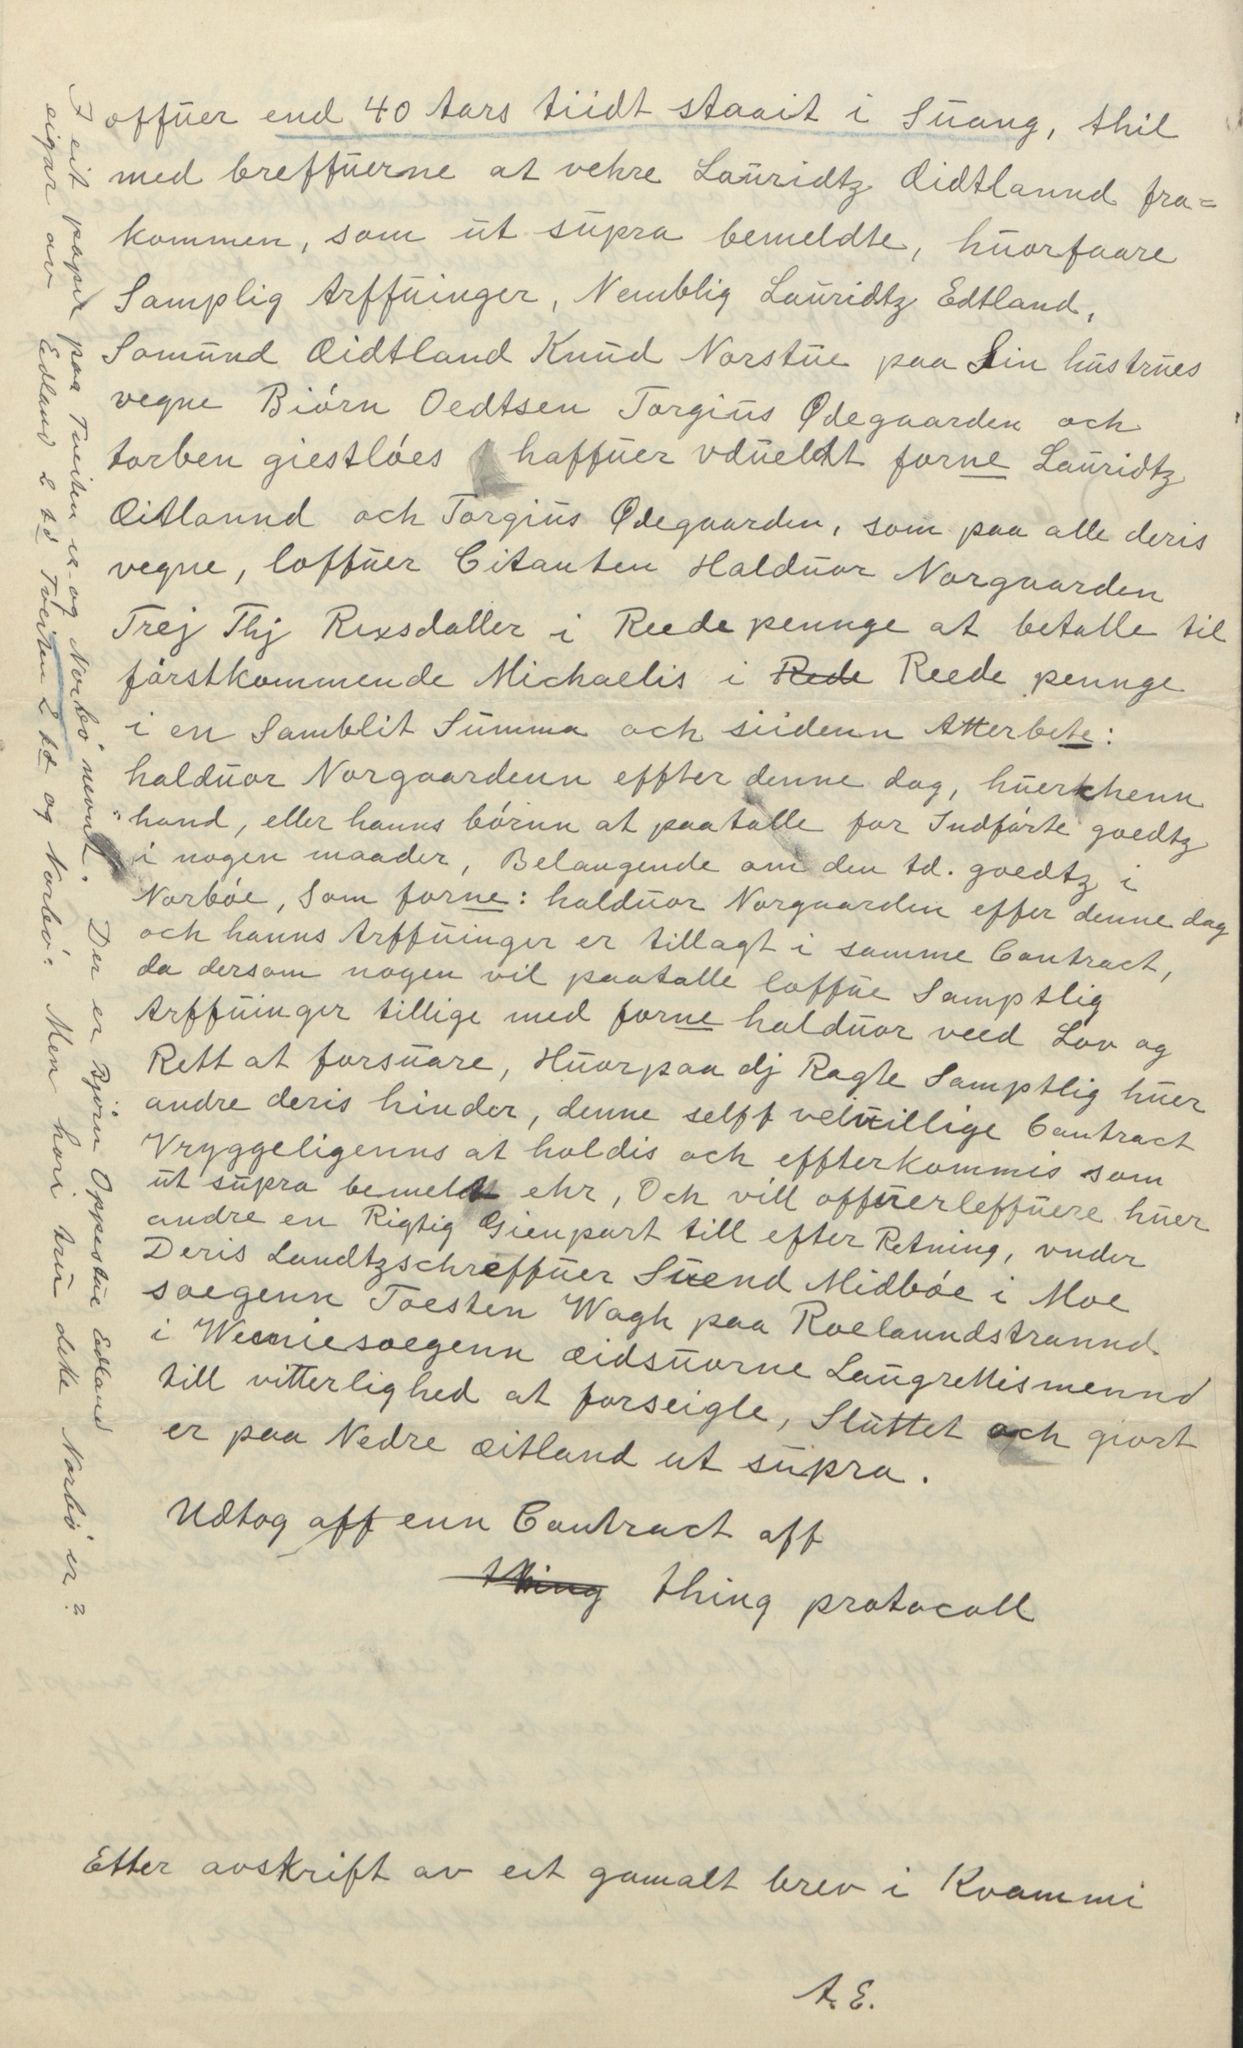 offuer end 40 Aars tiidt staait i Suang, thil
med breffuerne at vehre Lauridtz Æidtlannd fra=
kommen, som ut supra bemeldte, huorfaare
Samplig Arffuinger, Nemblig Lauridtz Edtland,
Somund Æidtland Knud Norstue paa Sin hustrues
vegne Biörn Oedtsen Torgius Ødegaarden och
torben giestlöes haffuer vdueldt forne Lauridtz
Æitlannd och Torgius Ødegaarden, som paa alle deris
vegne, loffuer Citanten Halduor Norgaarden
Trej Thj Rixsdaller i Reede pennge at betalle til
förstkommende Michaelis i Rede Reede pennge
i en Samblit Summa och siidenn Atterbete:
halduor Norgaardenn effter denne dag, huerckhenn
hand, eller hanns börnn at paatalle for Indförte goedtz
i nogen maader, Belangende om den td. goedtz i
Norböe, Som forne: halduor Norgaarden effer denne dag
och hanns Arffuinger er tillagt i samme Contract,
da dersom nogen vil paatalle loffue Samptlig
Arffuinger tillige med forne halduor veed Lov og
Rett at forsuare, Huorpaa dj Ragte Samptlig huer
andre deris hinder, denne selff veluillige Contract
Vryggeligenns at holdis och effterkommis som
ut supra bemeldt ehr, Och vill offuerleffuere huer
andre en Rigtig Gienpart till efter Retning, vnder
Deris Landtzschreffuer Suend Midböe i Moe
soegenn Toesten Wagh paa Roelanndstrannd
i Winiesoegenn Æidsuorne Laugrettismennd
till vitterlighed at forseigle, Sluttet och giort
er paa Nedre Æitland ut supra.
Udtog aff enn Contract aff
thing thing protocoll
Etter avskrift av eit gamalt brev i Kvammi
A. E.
I eit papir paa Tveiten er og Norbö nevnt. Der er Björn Oppestue Edland
eigar av Edland 2 td Tveiten 2 td og Norbö. Men hori tru dette Norbö er?